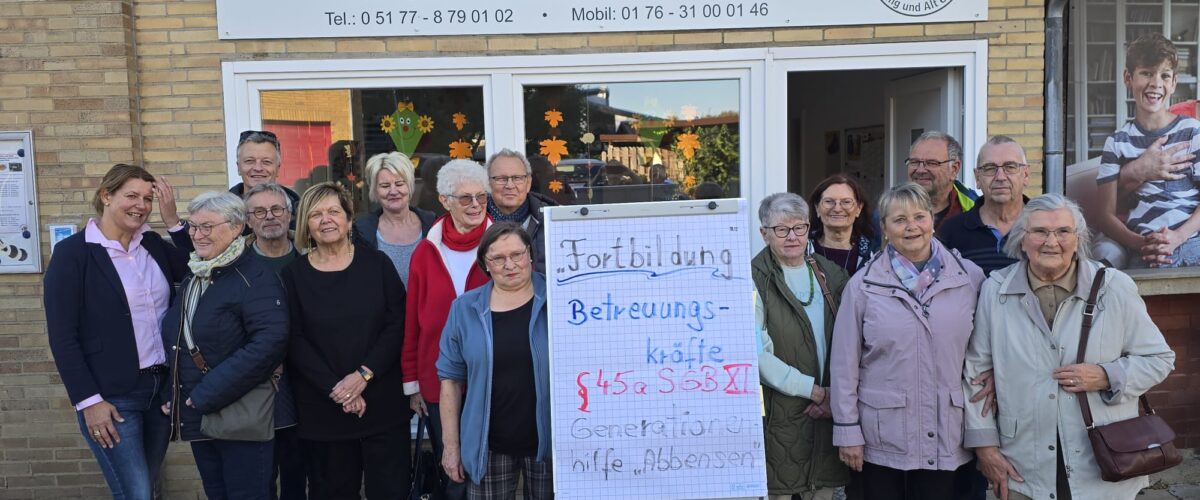 ng und Alt
Tel.: 0 51 77 - 8 79 01 02 • Mobil: 01 76 - 31 00 01 46
„Fortbildung
Betreuungs-
kräfte
§ 45a SGB XI
Generationen-
hilfe „Abbensen"